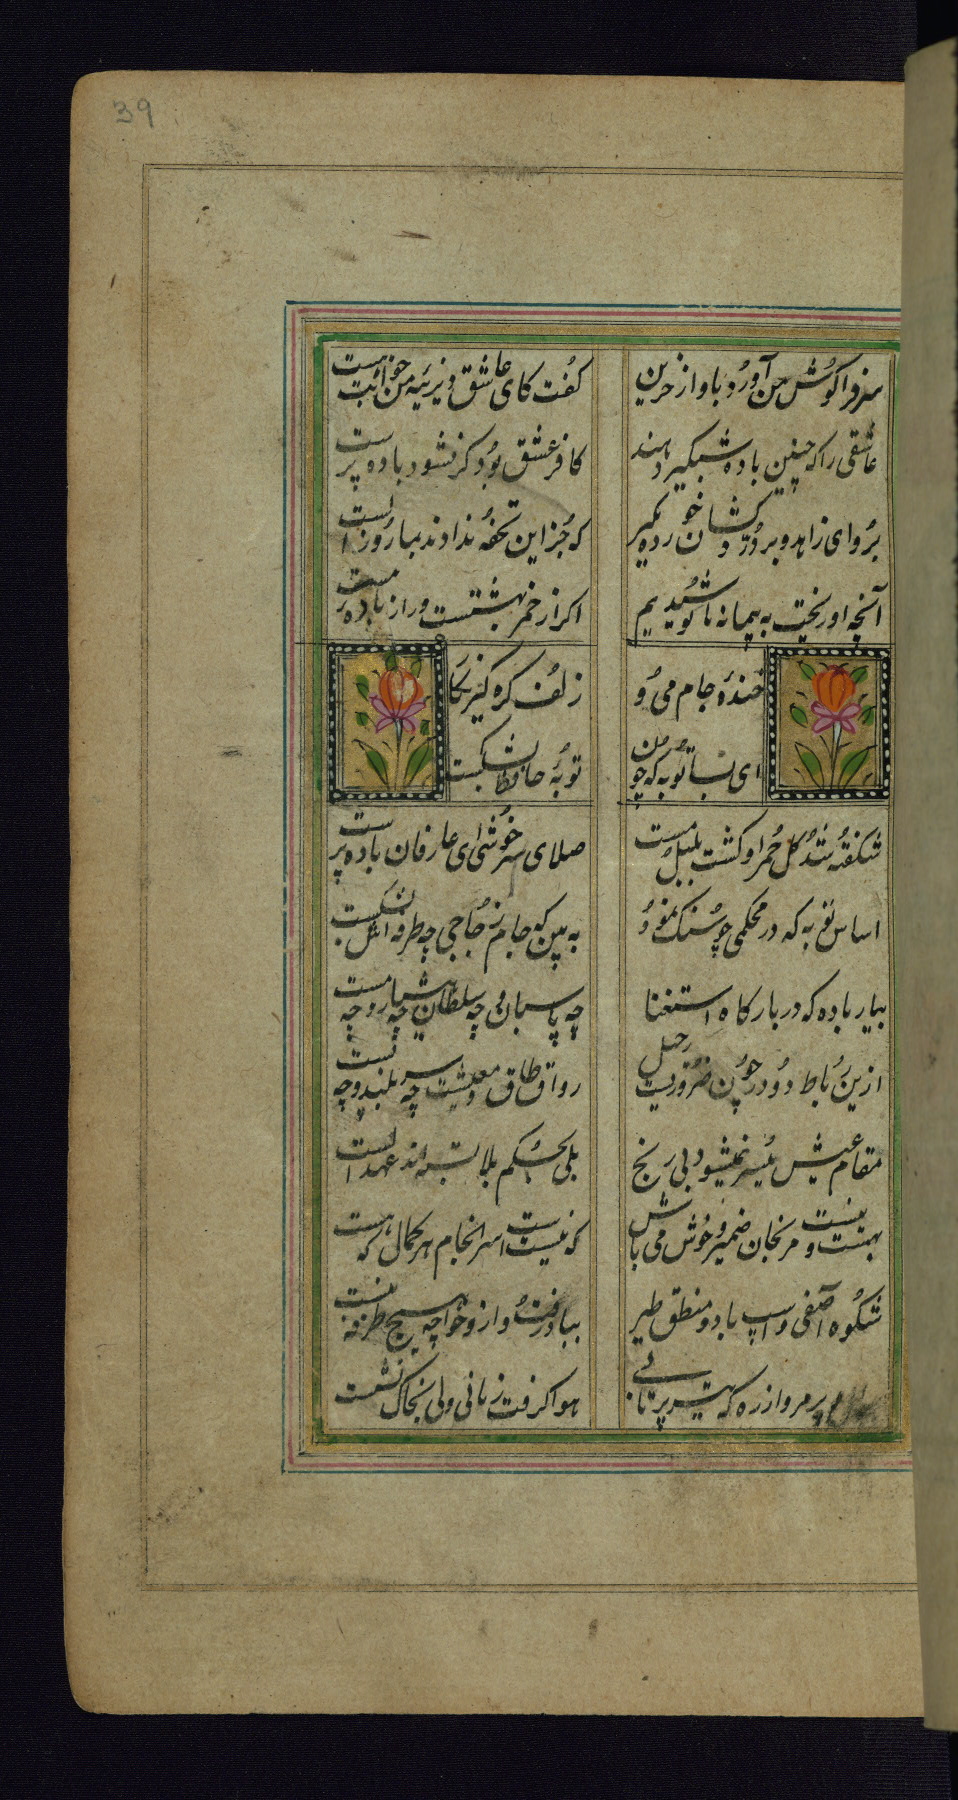 39
سر فرا گوش من آورد باواز حزین
گفت کای عاشق دیرینه من خوابت هست
عاشقی را که چنین باده شبگیر دهند
کافر عشق بود گر نشود باده پرست
برو ای زاهد و بر دردکشان خورده مگیر
که جز این تحفه ندادند بما روز الست
آنچه او ریخت به پیمانه ما نوشیدیم
اگر از خمر بهشتست ور از باده مست
خنده جام می و
زلف گره گیر نگار
ای بسا توبه که چون
توبه حافظ بشکست
شکفته شد گل حمرا و گشت بلبل مست
صلای سرخوشی ای عارفان باده پرست
اساس توبه که در محکمی چو سنگ نمود
به بین که جام زجاجی چه طرفه اش بشکست
بیار باده که در بارگاه استغنا
چه پاسبان و چه سلطان چه هشیار و چه مست
ازین رباط دو در چون ضرورتست رحیل
رواق طاق معیشت چه سر بلند و چه پست
مقام عیش میسر نمیشود بی رنج
بلی بحکم بلا بسته اند عهد الست
بهست و نیست مرنجان ضمیر و خوش می باش
که نیستست سرانجام هر کمال که هست
شکوه آصفی و اسپ باد و منطق طیر
بباد رفت و ازو خواجه هیچ طرف نبست
مرو از ره که تیر پرتابی
هوا گرفت زمانی ولی بخاک نشست